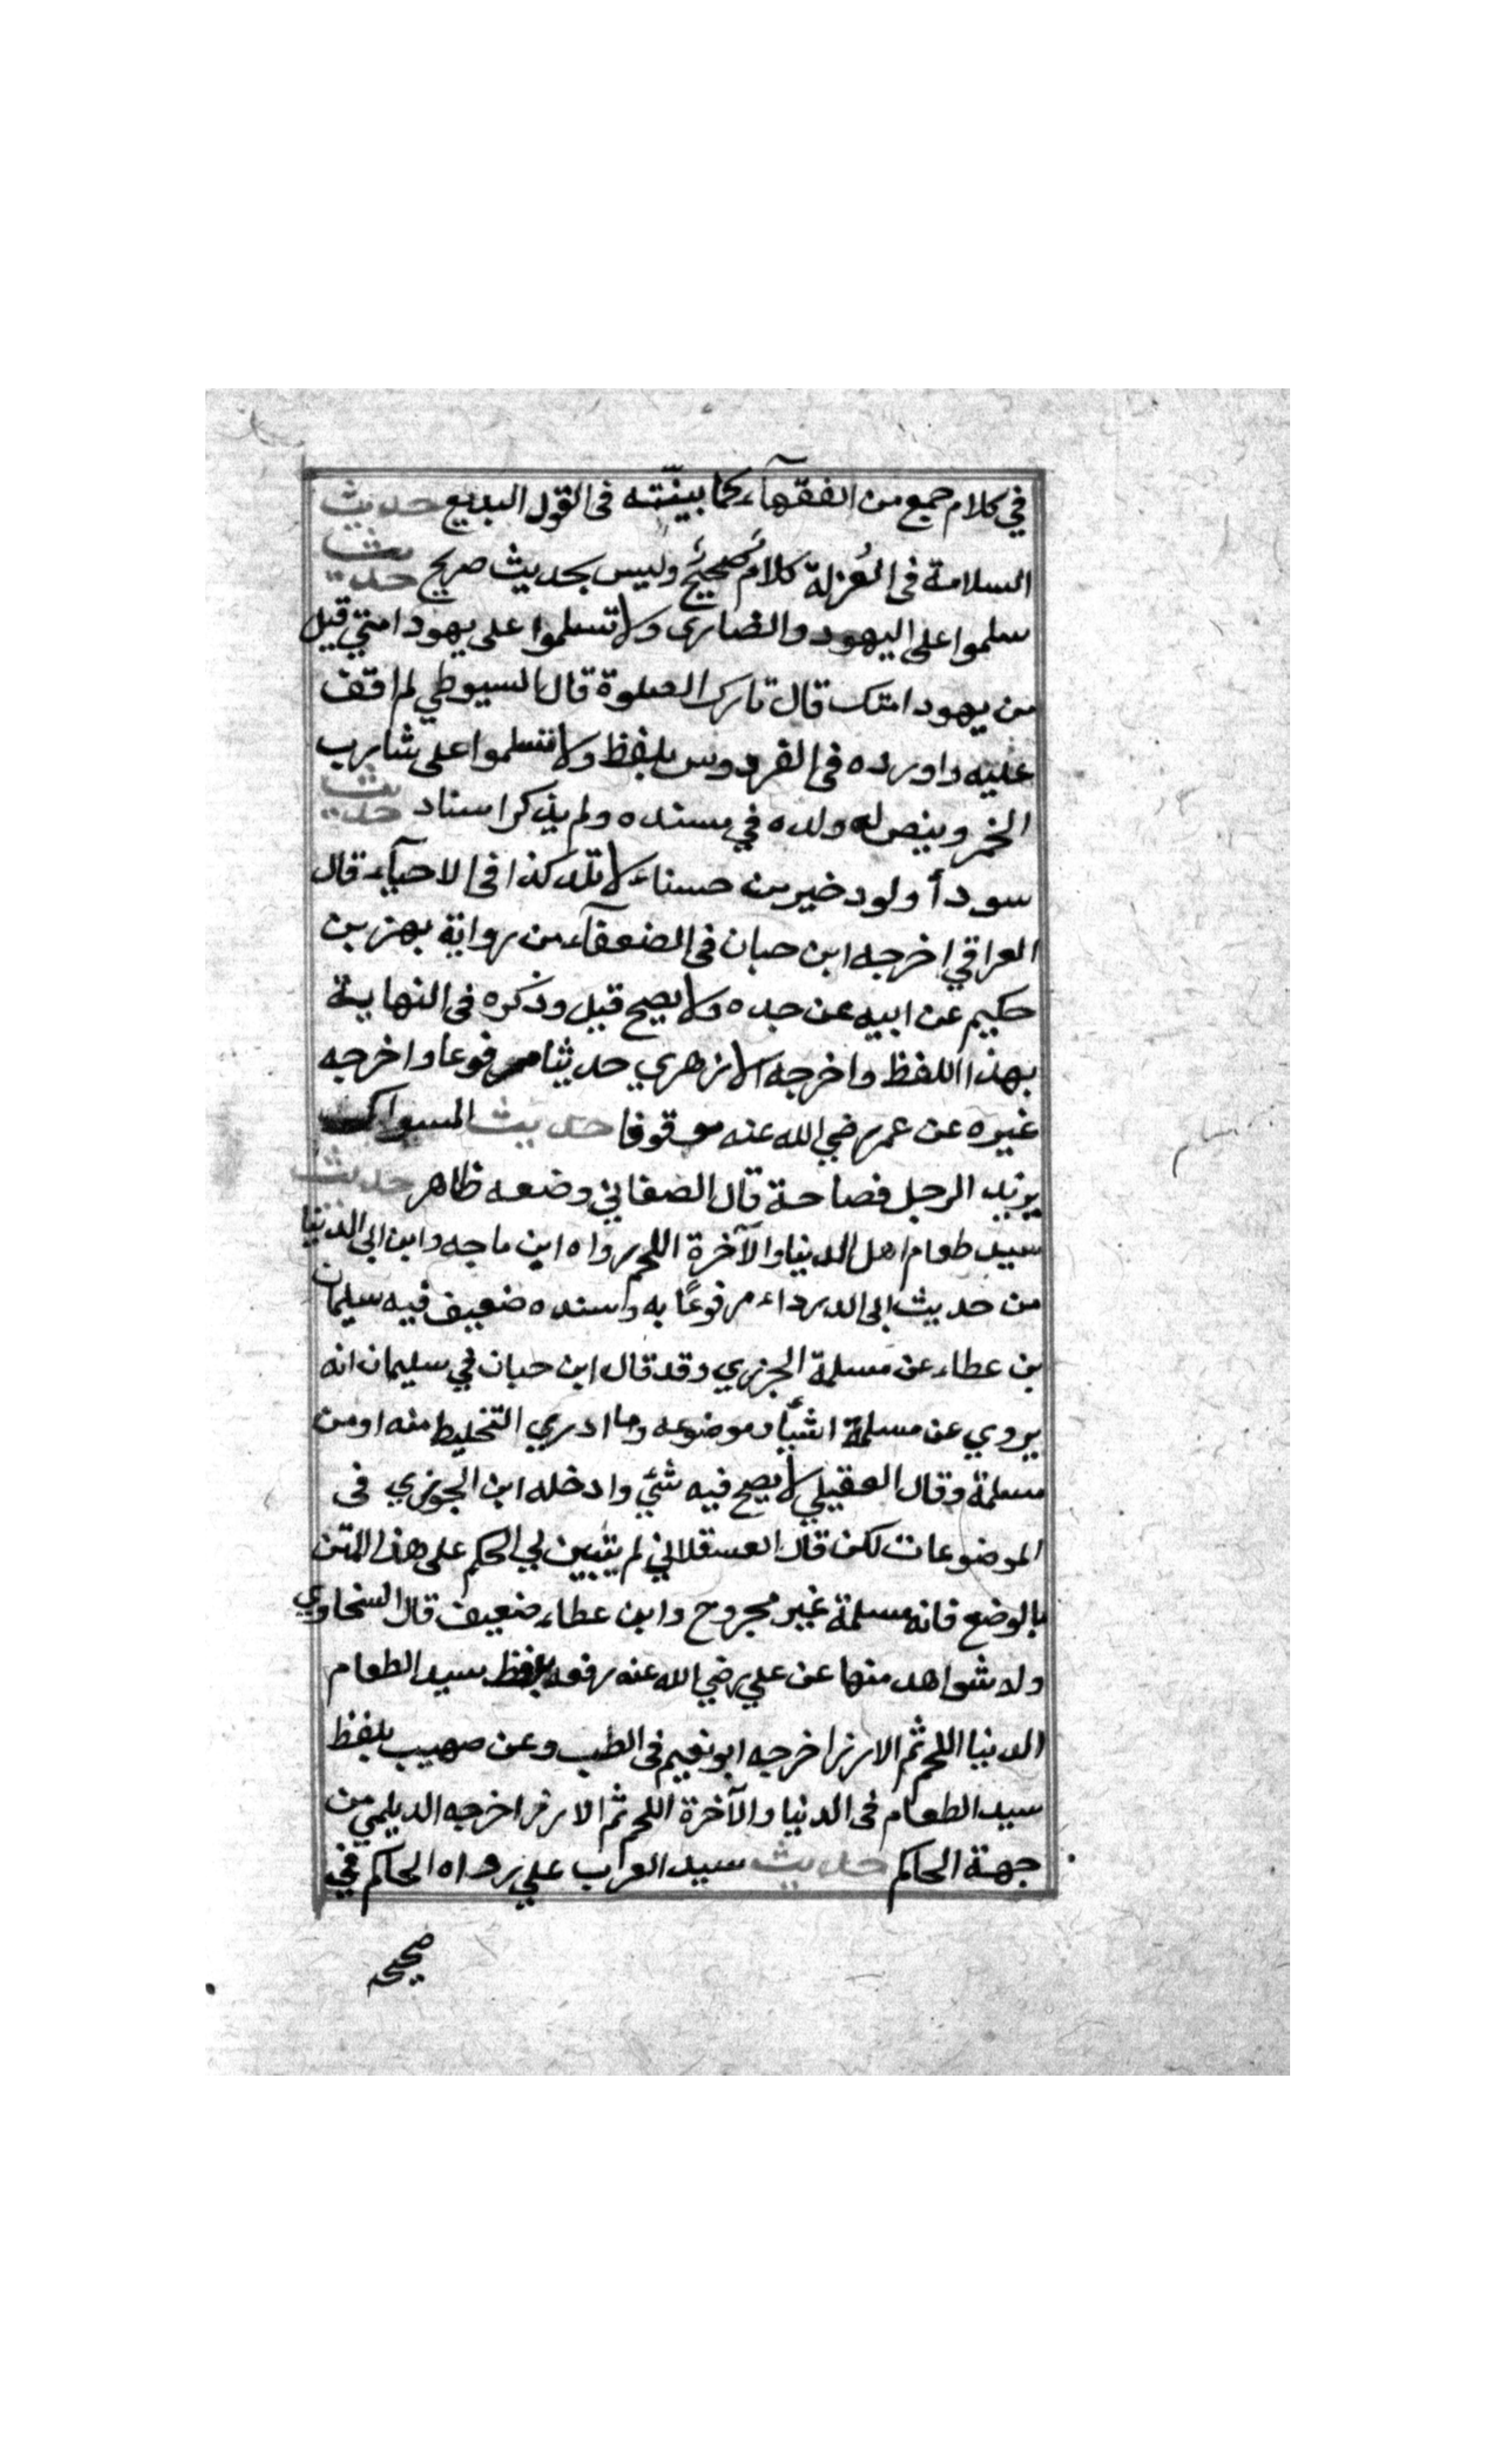 في كلام جمع من الفقهآء كما بينّته فى القول البديع حديث
السلامة فى العُزلة كلامٌ صحيحٌ وليس بحديث صريح حديث
سلموا على اليهود والنصارى ولا تسلموا على يهود امتي قيل
من يهود امتك قال تارك الصلوة قال السيوطي لم اقف
عليه واورده فى الفردوس بلفظ ولا تسلموا على شارب
الخمر وبيض له ولده في مسنده ولم يذكر اسناد حديث
سودأ ولود خير من حسناء لا تلد كذا فى الاحيآء قال
العراقي اخرجه ابن حبان فى الضعفآء من رواية بهز بن
حكيم عن ابيه عن جده ولا يصح قيل وذكره فى النهاية
بهذا اللفظ واخرجه الازهري حديثا مرفوعا واخرجه
غيره عن عمر رضي الله عنه موقوفا حديث السواك
يزيد الرجل فصاحة قال الصغاني وضعه ظاهر حديث
سيد طعام اهل الدنيا والآخرة اللحم رواه ابن ماجه وابن ابى الدنيا
من حديث ابى الدرداء مرفوعًا به وسنده ضعيف فيه سليمان
بن عطاء عن مسلمة الجزري وقد قال ابن حبان في سليمان انه
يروي عن مسلمة اشيآء موضوعه وما ادري التخليط منه او من
مسلمة وقال العقيلي لا يصح فيه شئي وادخله ابن الجوزي فى
الموضوعات لكن قال العسقلاني لم يتبين لي الحكم على هذا المتن
بالوضع فانه مسلمة غير مجروح وابن عطاء ضعيف قال السخاوي
وله شواهد منها عن علي رضي الله عنه رفعه بلفظ سيد الطعام
الدنيا اللحم ثم الارز اخرجه ابو نعيم فى الطب وعن صهيب بلفظ
سيد الطعام فى الدنيا والآخرة اللحم ثم الارز اخرجه الديلمي من
جهة الحاكم حديث سيد العرب علي رواه الحاكم في
صحيحه